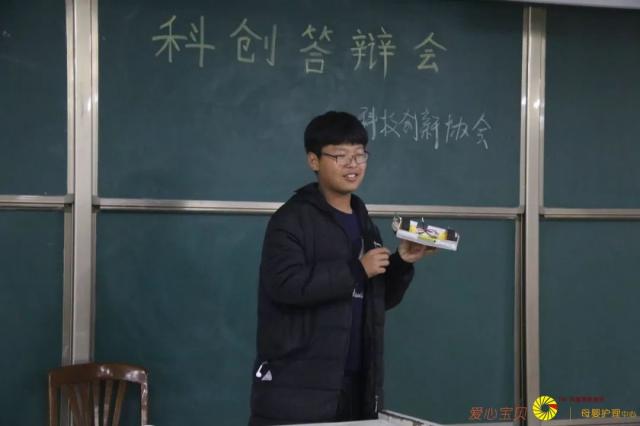 科创答辩会
科技创新协会
爱心宝贝
母婴护理中心